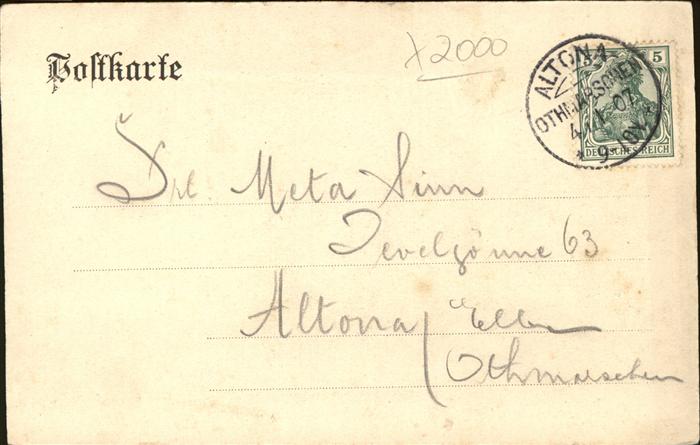 Postkarte
x2000
ALTONA
OTHMARSCHEN
4.1.07.
* 9-10V. *
5
DEUTSCHES REICH
Frl. Meta Sinn
Jevelgönne 63
Altona/ Elbe
Othmarschen